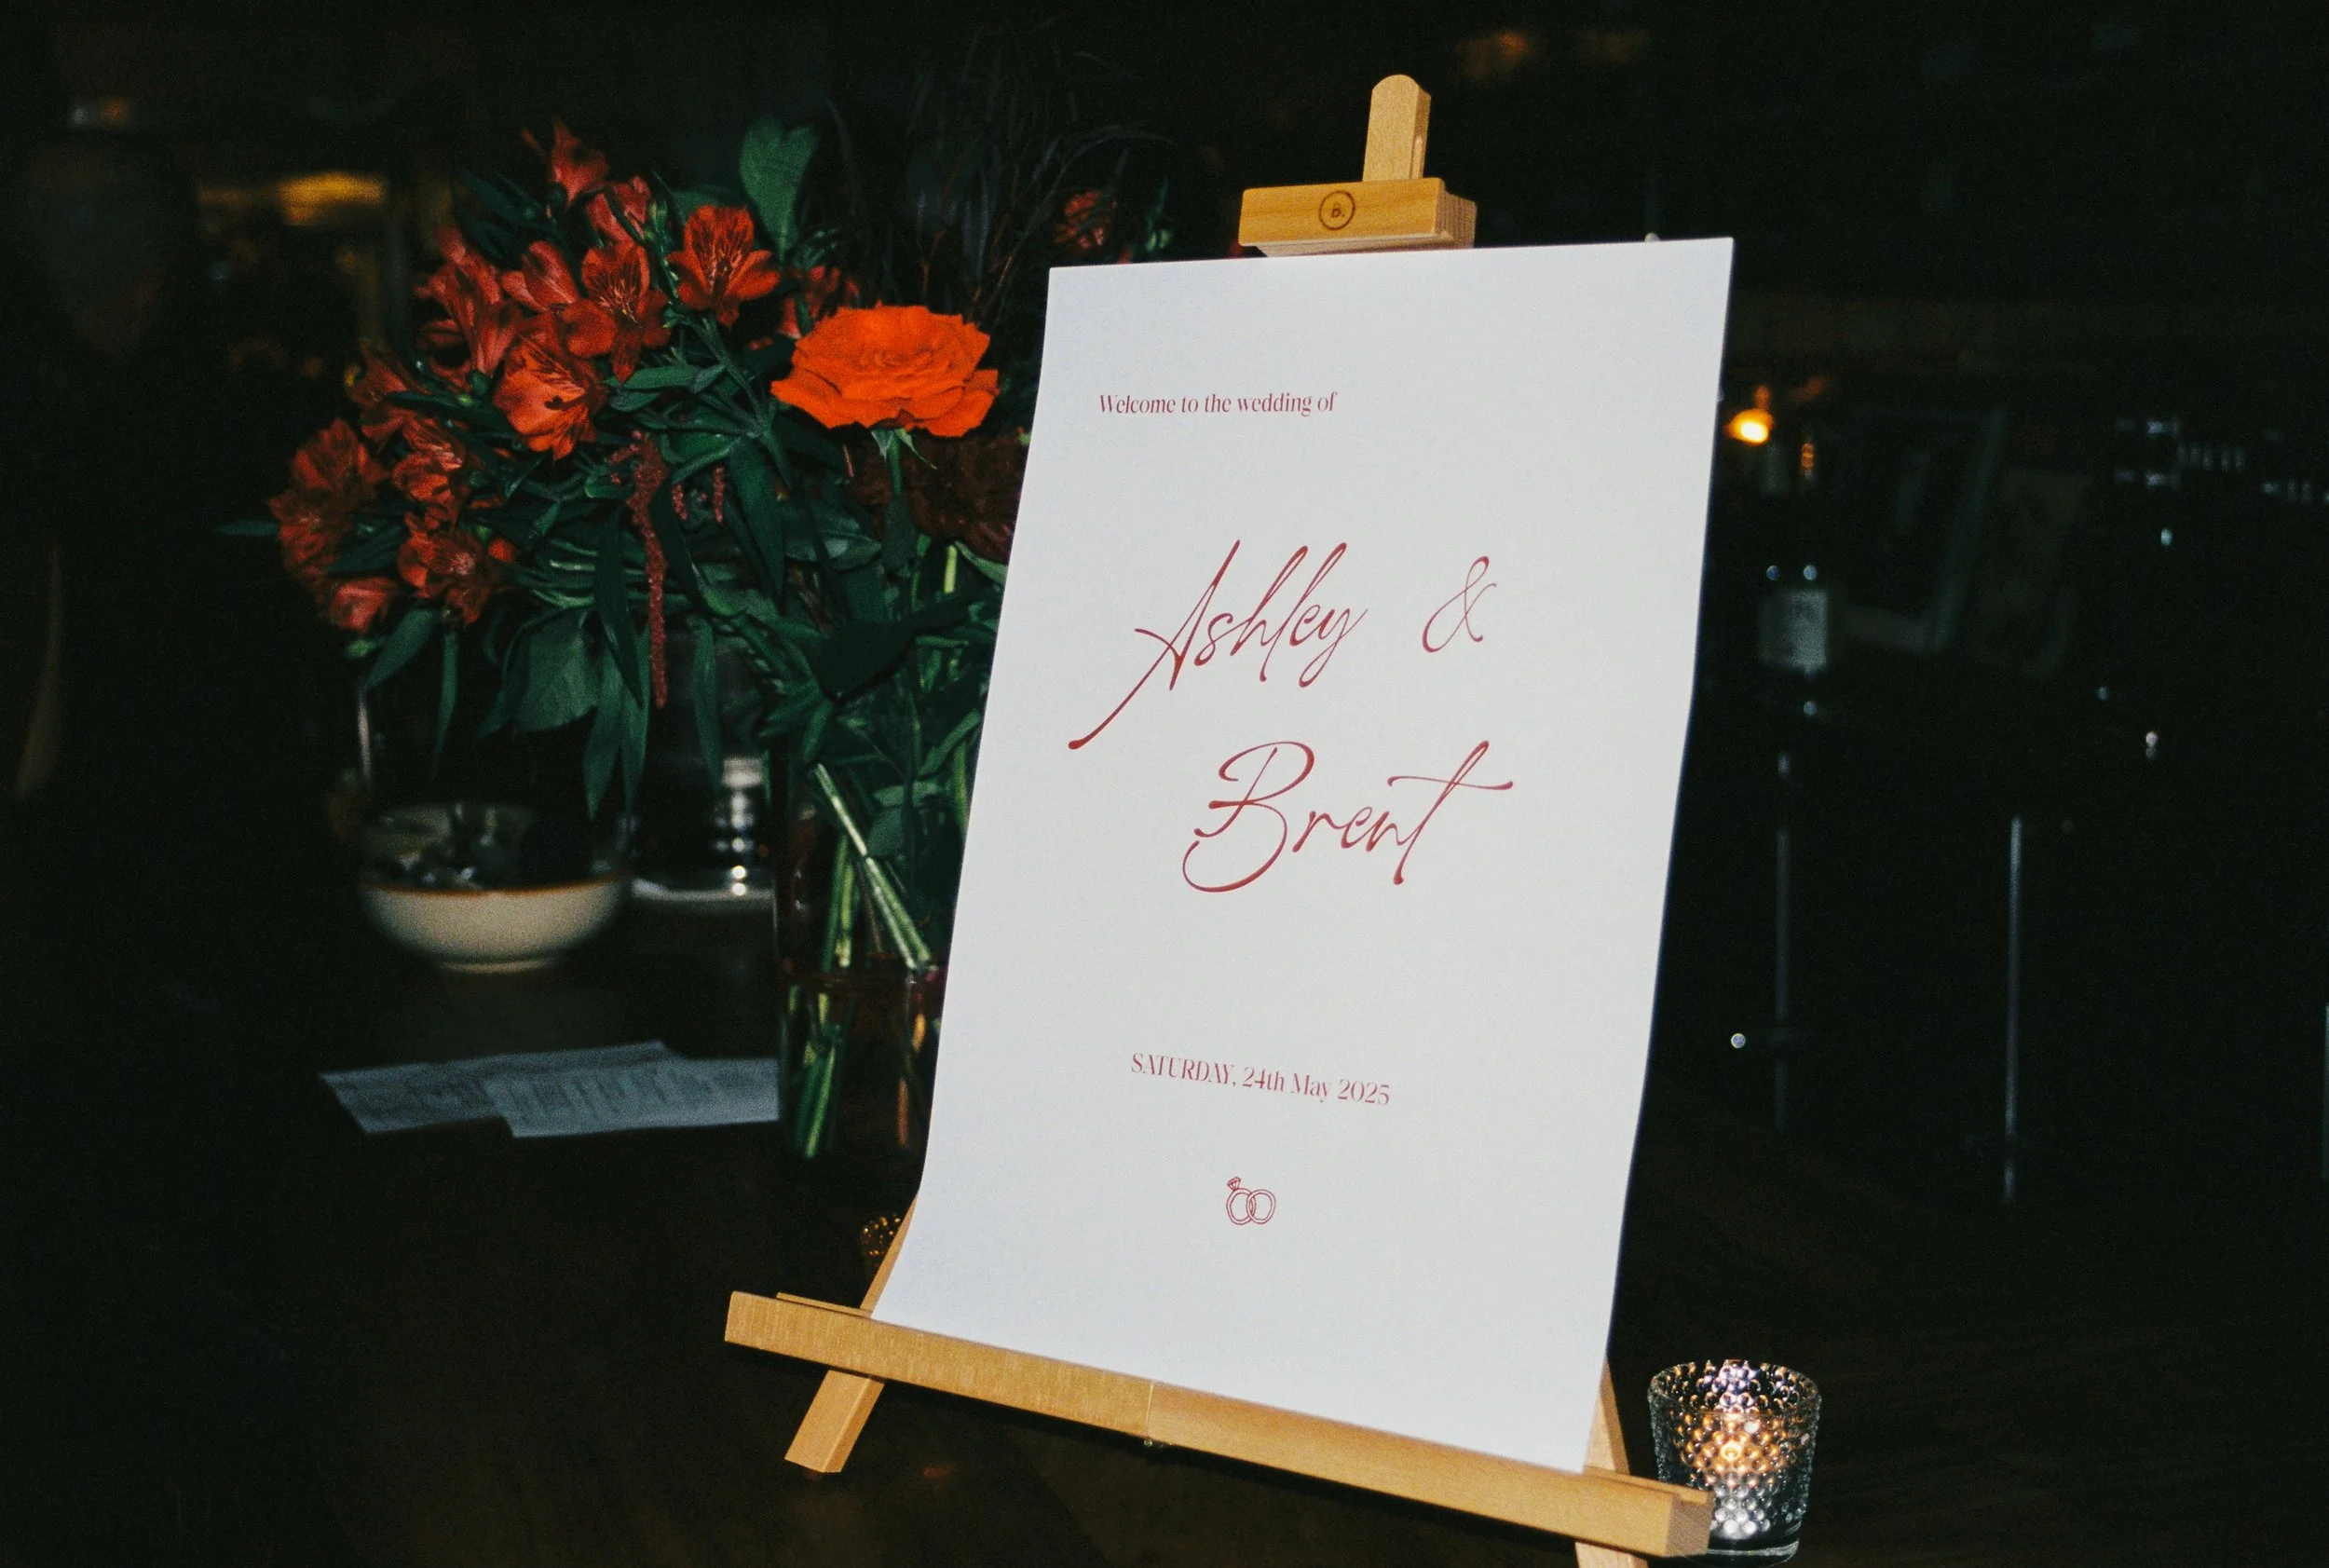 Welcome to the wedding of
Ashley &
Brent
SATURDAY, 24th May 2025